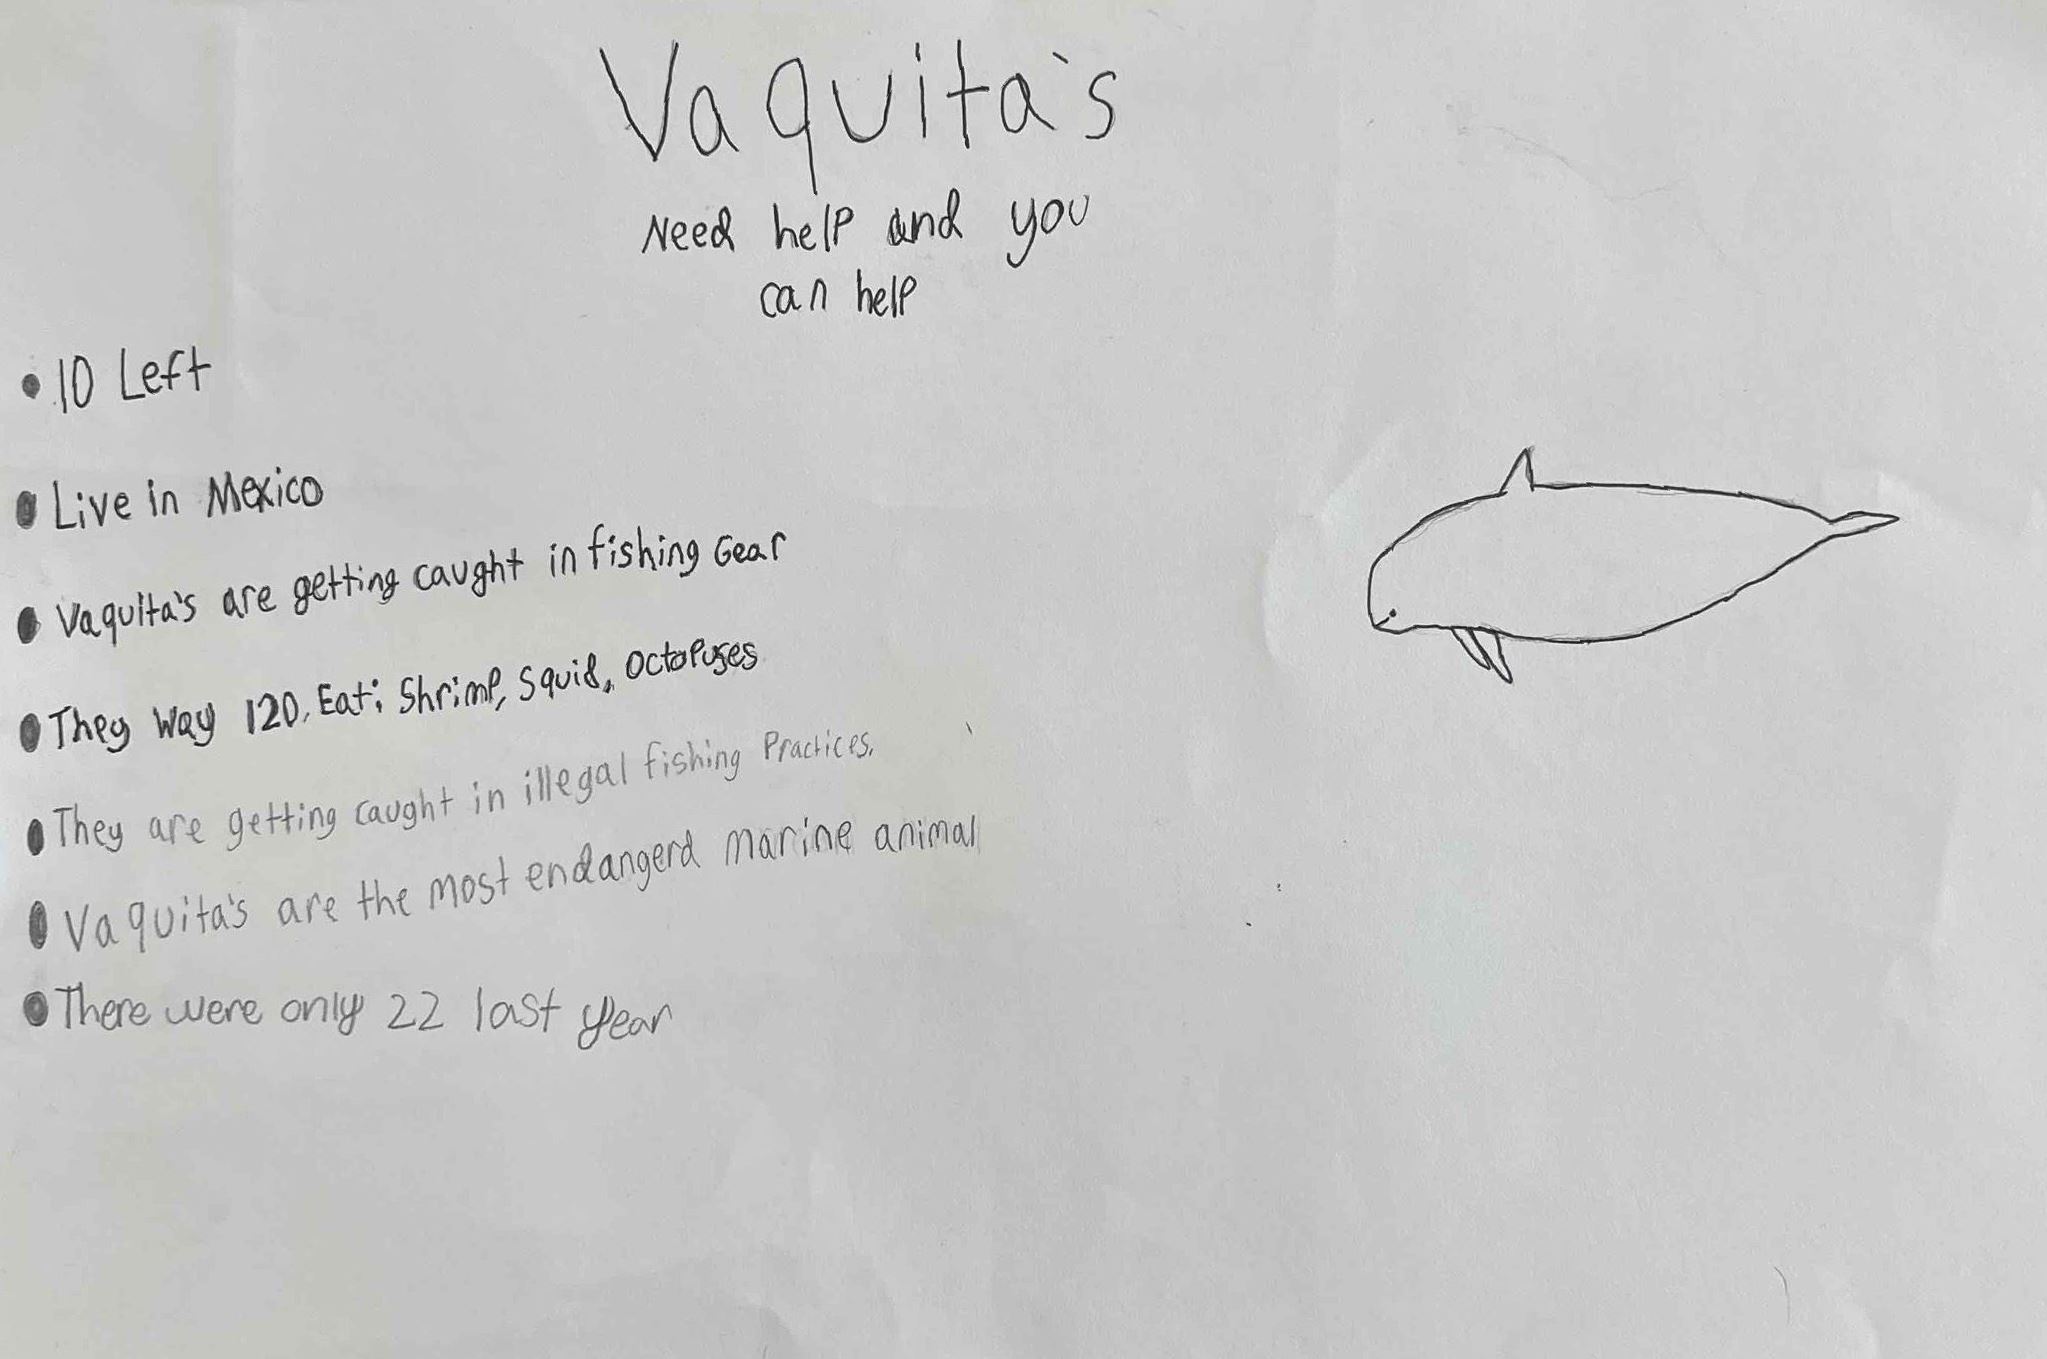 Vaquita's
Need help and you
can help
• 10 Left
• Live in Mexico
• Vaquita's are getting caught in fishing Gear
• They Way 120, Eat: Shrimp, Squid, Octopuses
• They are getting caught in illegal fishing Practices.
• Vaquita's are the most endangerd marine animal
• There were only 22 last year